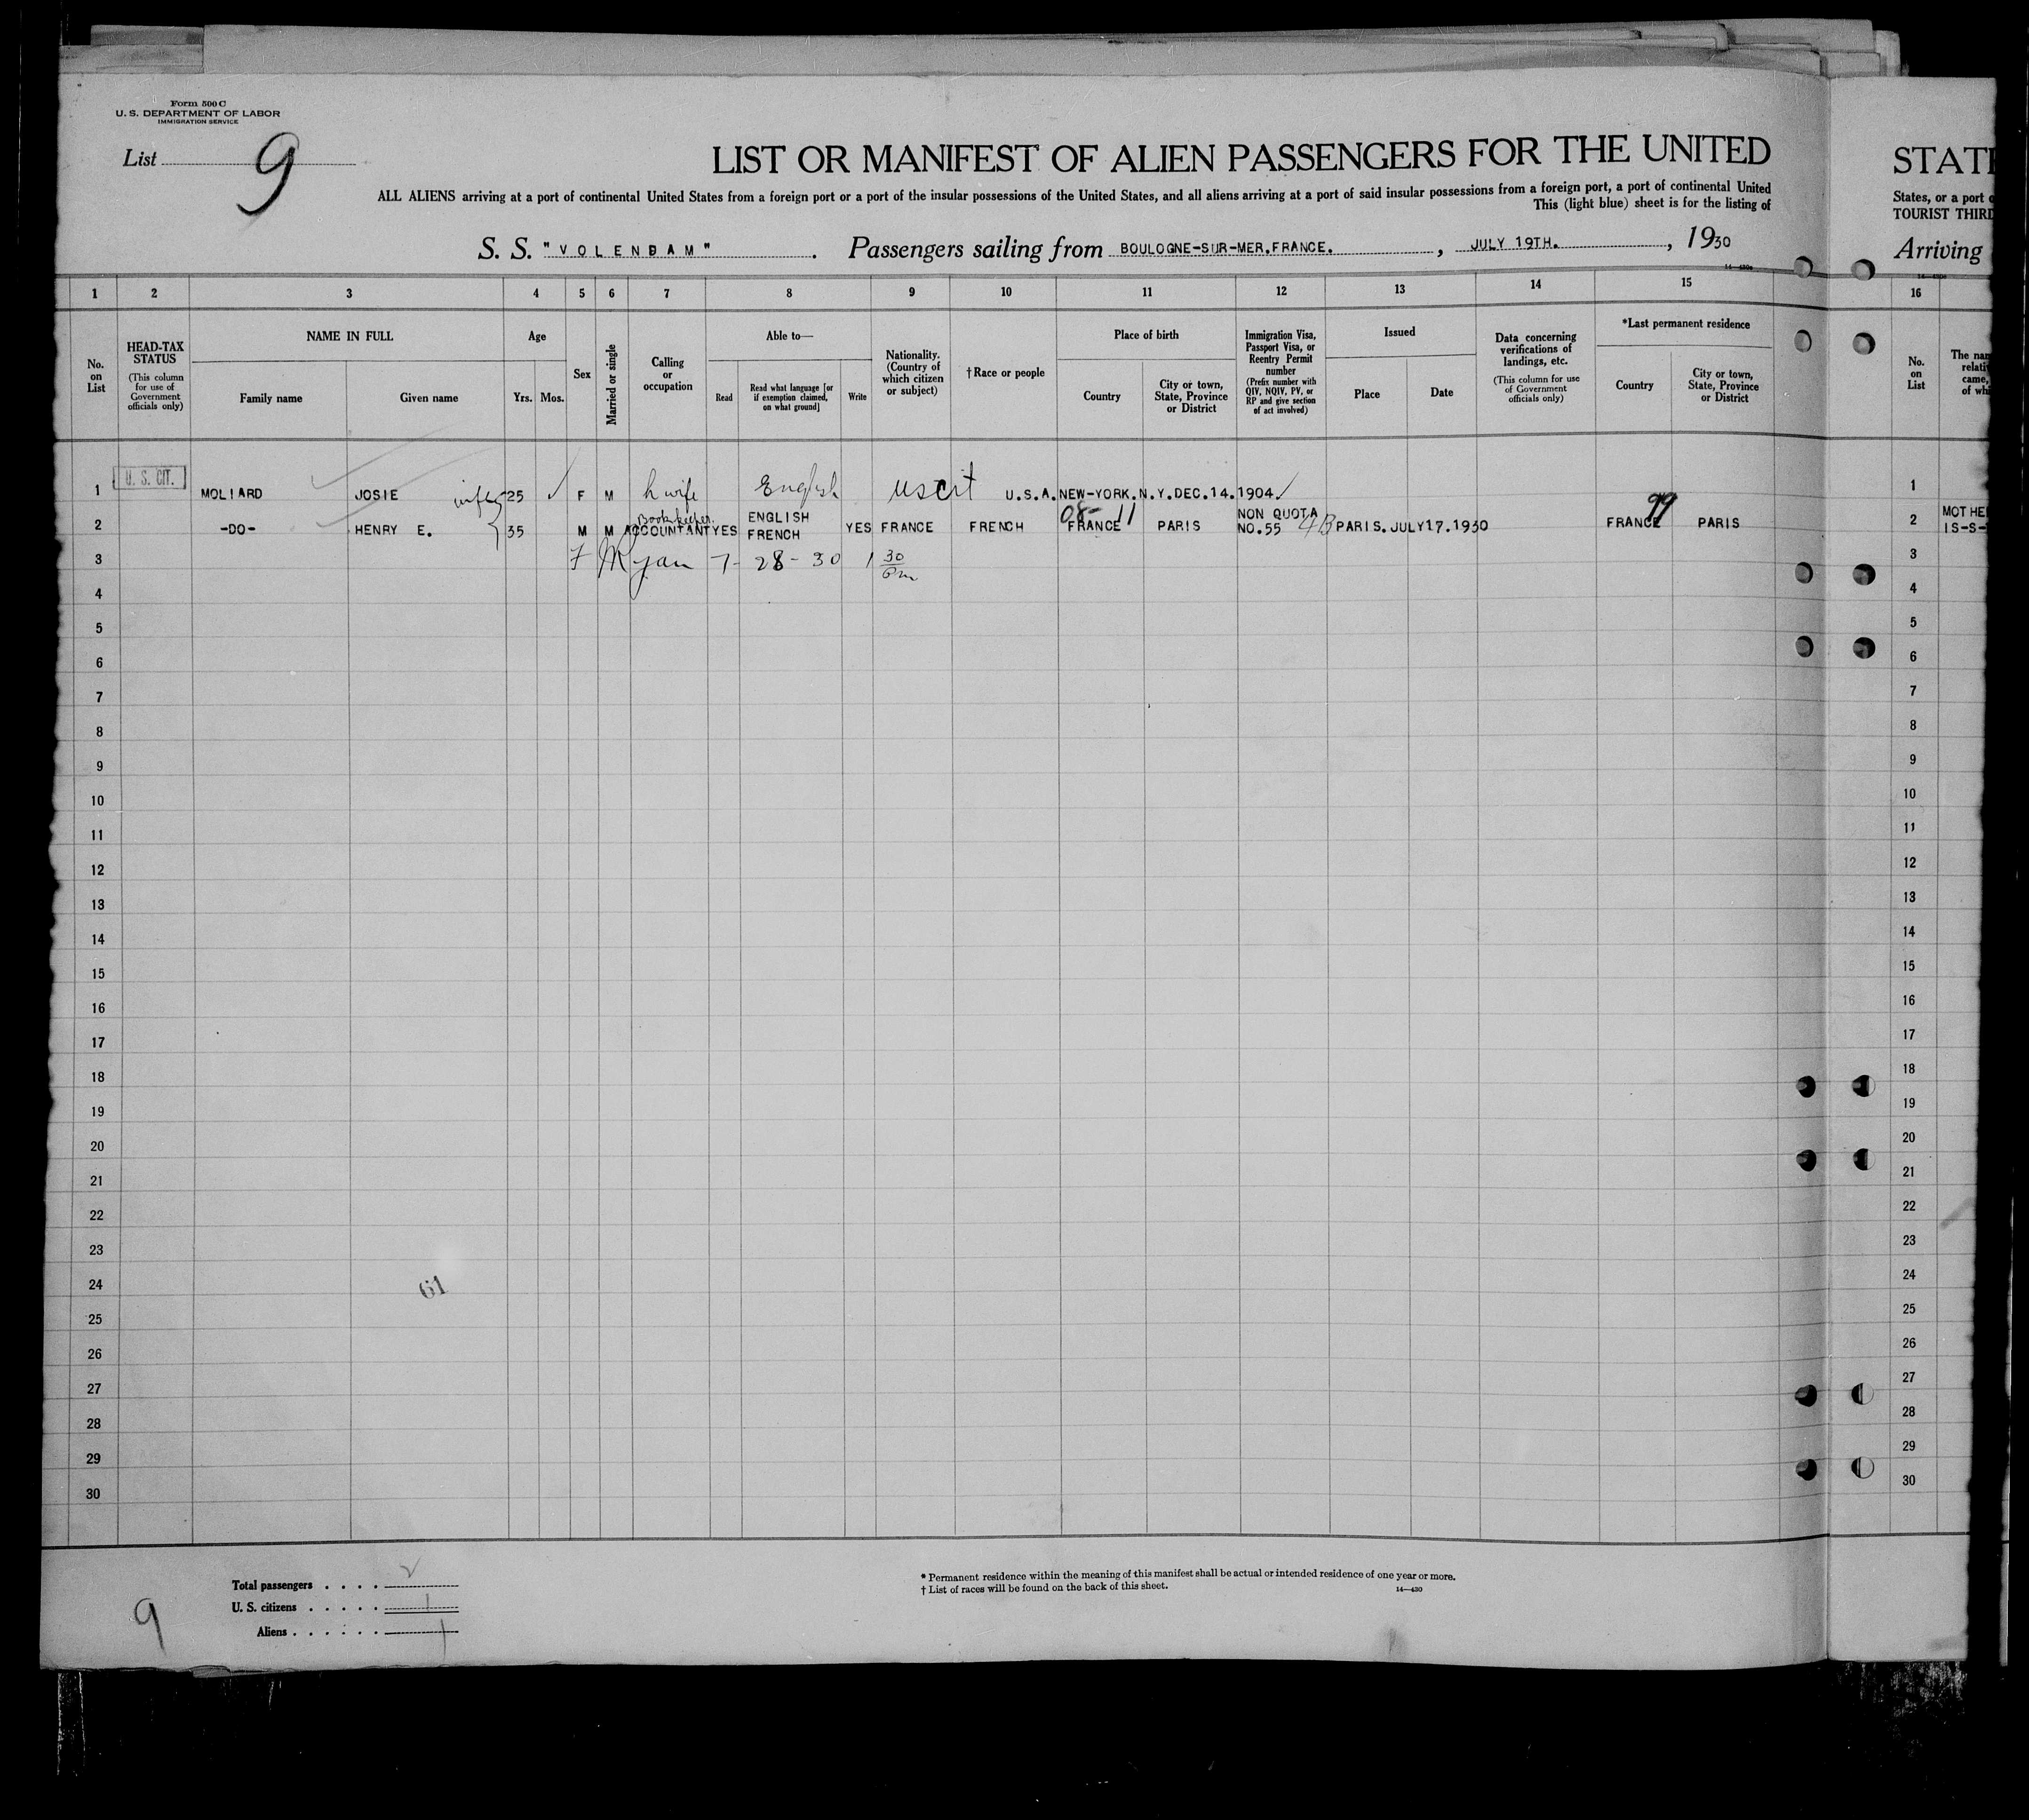 Form 500 C
U. S. DEPARTMENT OF LABOR
IMMIGRATION SERVICE
List 9
LIST OR MANIFEST OF ALIEN PASSENGERS FOR THE UNITED
ALL ALIENS arriving at a port of continental United States from a foreign port or a port of the insular possessions of the United States, and all aliens arriving at a port of said insular possessions from a foreign port, a port of continental United
This (light blue) sheet is for the listing of
S. S. "VOLENDAM". Passengers sailing from BOULOGNE-SUR-MER.FRANCE., JULY 19TH., 1930
STAT
States, or a port
TOURIST THIRD
Arriving
1 2 3 4 5 6 7 8 9 10 11 12 13 14 15 16
No. on List
HEAD-TAX STATUS
(This column for use of Government officials only)
NAME IN FULL
Family name
Given name
Age
Yrs. Mos.
Sex
Married or single
Calling or occupation
Able to—
Read
Read what language [or if exemption claimed, on what ground]
Write
Nationality. (Country of which citizen or subject)
†Race or people
Place of birth
Country
City or town, State, Province or District
Immigration Visa, Passport Visa, or Reentry Permit number
(Prefix number with QIV, NQIV, PV, or RP and give section of act involved)
Issued
Place
Date
Data concerning verifications of landings, etc.
(This column for use of Government officials only)
*Last permanent residence
Country
City or town, State, Province or District
No. on List
1 U. S. CIT. MOLIARD JOSIE wife 25 F M h wife English uscit U.S.A.NEW-YORK.N.Y.DEC.14.1904. 1
2 -DO- HENRY E. 35 M M Bookkeeper. ACCOUNTANT YES ENGLISH FRENCH YES FRANCE FRENCH 08- 11 FRANCE PARIS NON QUOTA NO.55 4B PARIS.JULY17.1930 99 FRANCE PARIS 2 MOTHE
IS-S-
3 F M Ryan 7-28-30 1 30 Pm 3
4 4
5 5
6 6
7 7
8 8
9 9
10 10
11 11
12 12
13 13
14 14
15 15
16 16
17 17
18 18
19 19
20 20
21 21
22 22
23 23
24 61 24
25 25
26 26
27 27
28 28
29 29
30 30
Total passengers . . . . 2
U. S. citizens . . . . . 1
Aliens . . . . . . 1
9
* Permanent residence within the meaning of this manifest shall be actual or intended residence of one year or more.
† List of races will be found on the back of this sheet.
14—430